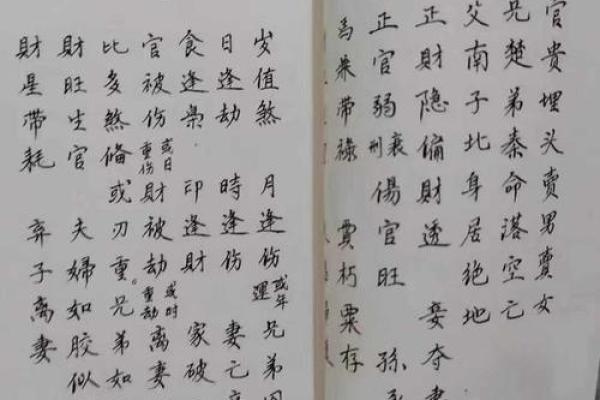 官貴埋头賣男賣女
兄楚弟秦命落空亡
父南子北身居绝地
正財隐偏財透 妾夺
正官弱 衰 刑 傷官旺 孫
馬 带祿 貫朽粟存
岁值煞 月逢伤 或年運 兄弟
日逢劫 時逢伤 妻亡
食逢枭 印逢財 家破
官被伤 或日重伤 財被劫 或时重劫 离妻
比多煞偹 或刃重。兄弟如
財旺生官 夫婦如胶似
財星帶耗 弃子离妻